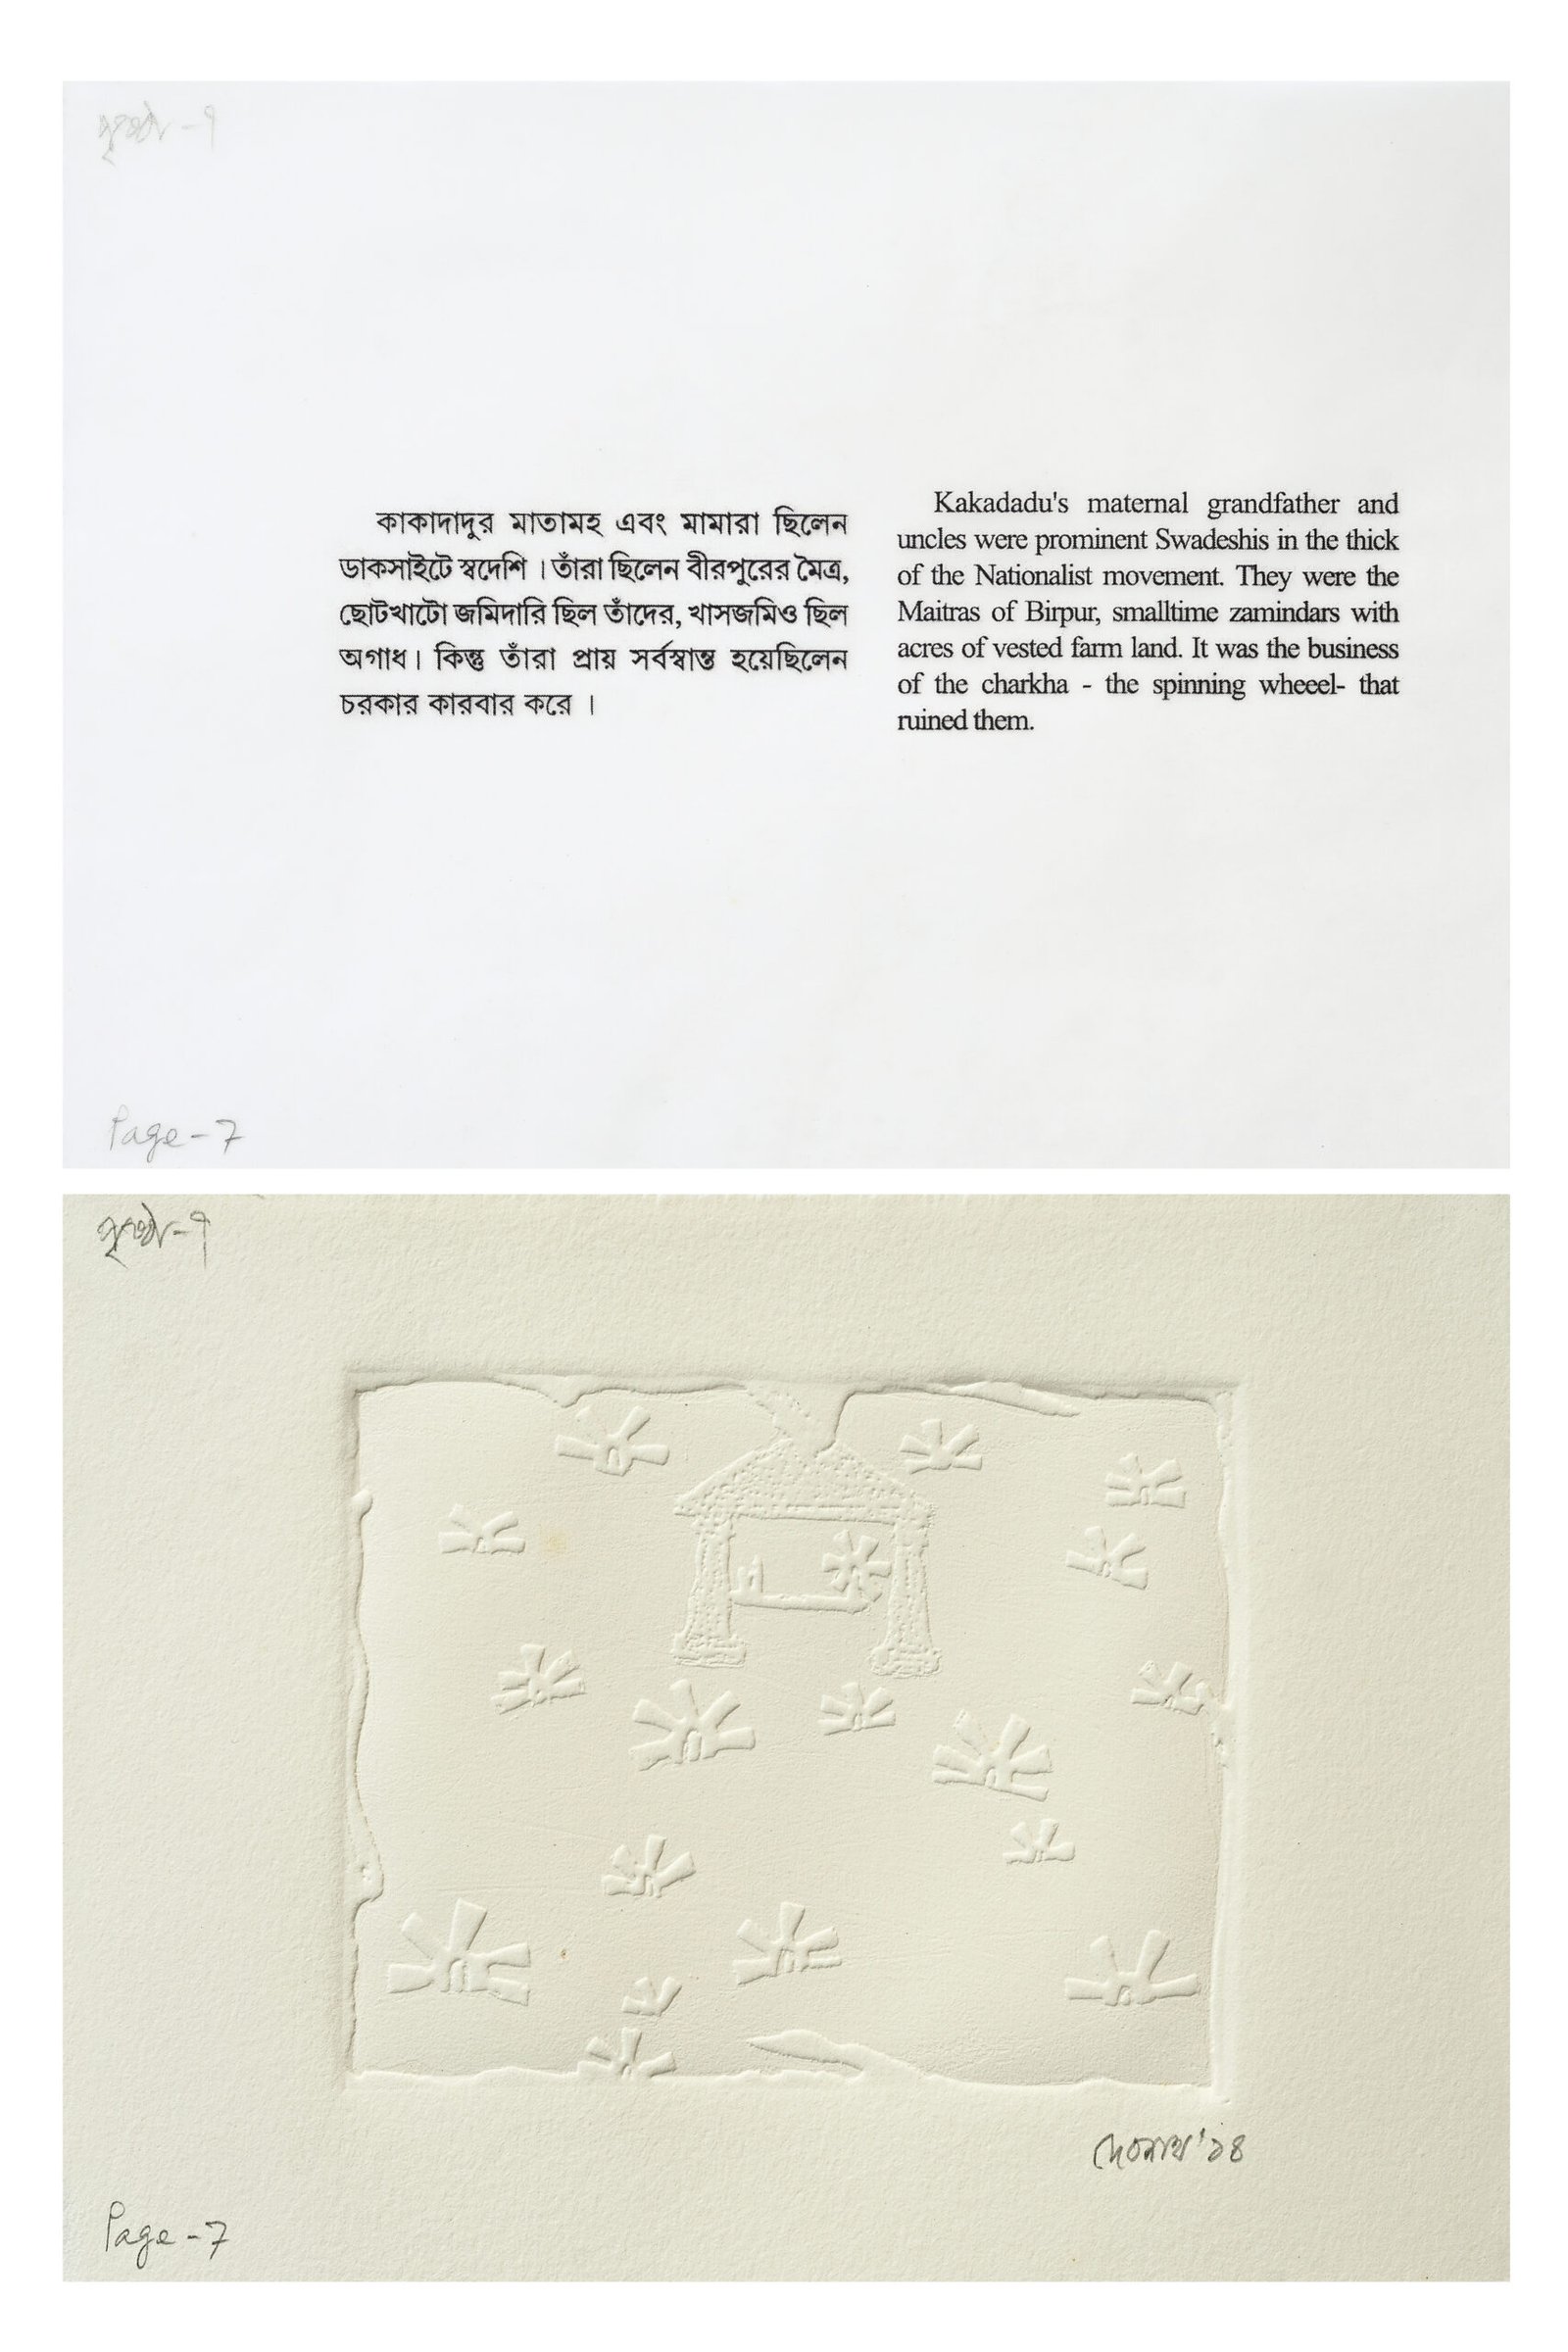 পৃষ্ঠা - ৭
কাকাদাদুর মাতামহ এবং মামারা ছিলেন
ডাকসাইটে স্বদেশি । তাঁরা ছিলেন বীরপুরের মৈত্র,
ছোটখাটো জমিদারি ছিল তাঁদের, খাসজমিও ছিল
অগাধ। কিন্তু তাঁরা প্রায় সর্বস্বান্ত হয়েছিলেন
চরকার কারবার করে ।
Kakadadu's maternal grandfather and
uncles were prominent Swadeshis in the thick
of the Nationalist movement. They were the
Maitras of Birpur, smalltime zamindars with
acres of vested farm land. It was the business
of the charkha - the spinning wheeel- that
ruined them.
Page - 7
পৃষ্ঠা - ৭
দেবনাথ '১৪
Page - 7